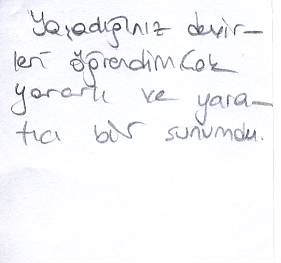 Yaşadığınız devir-
leri öğrendim Çok
yararlı ve yara-
tıcı bir sunumdu.